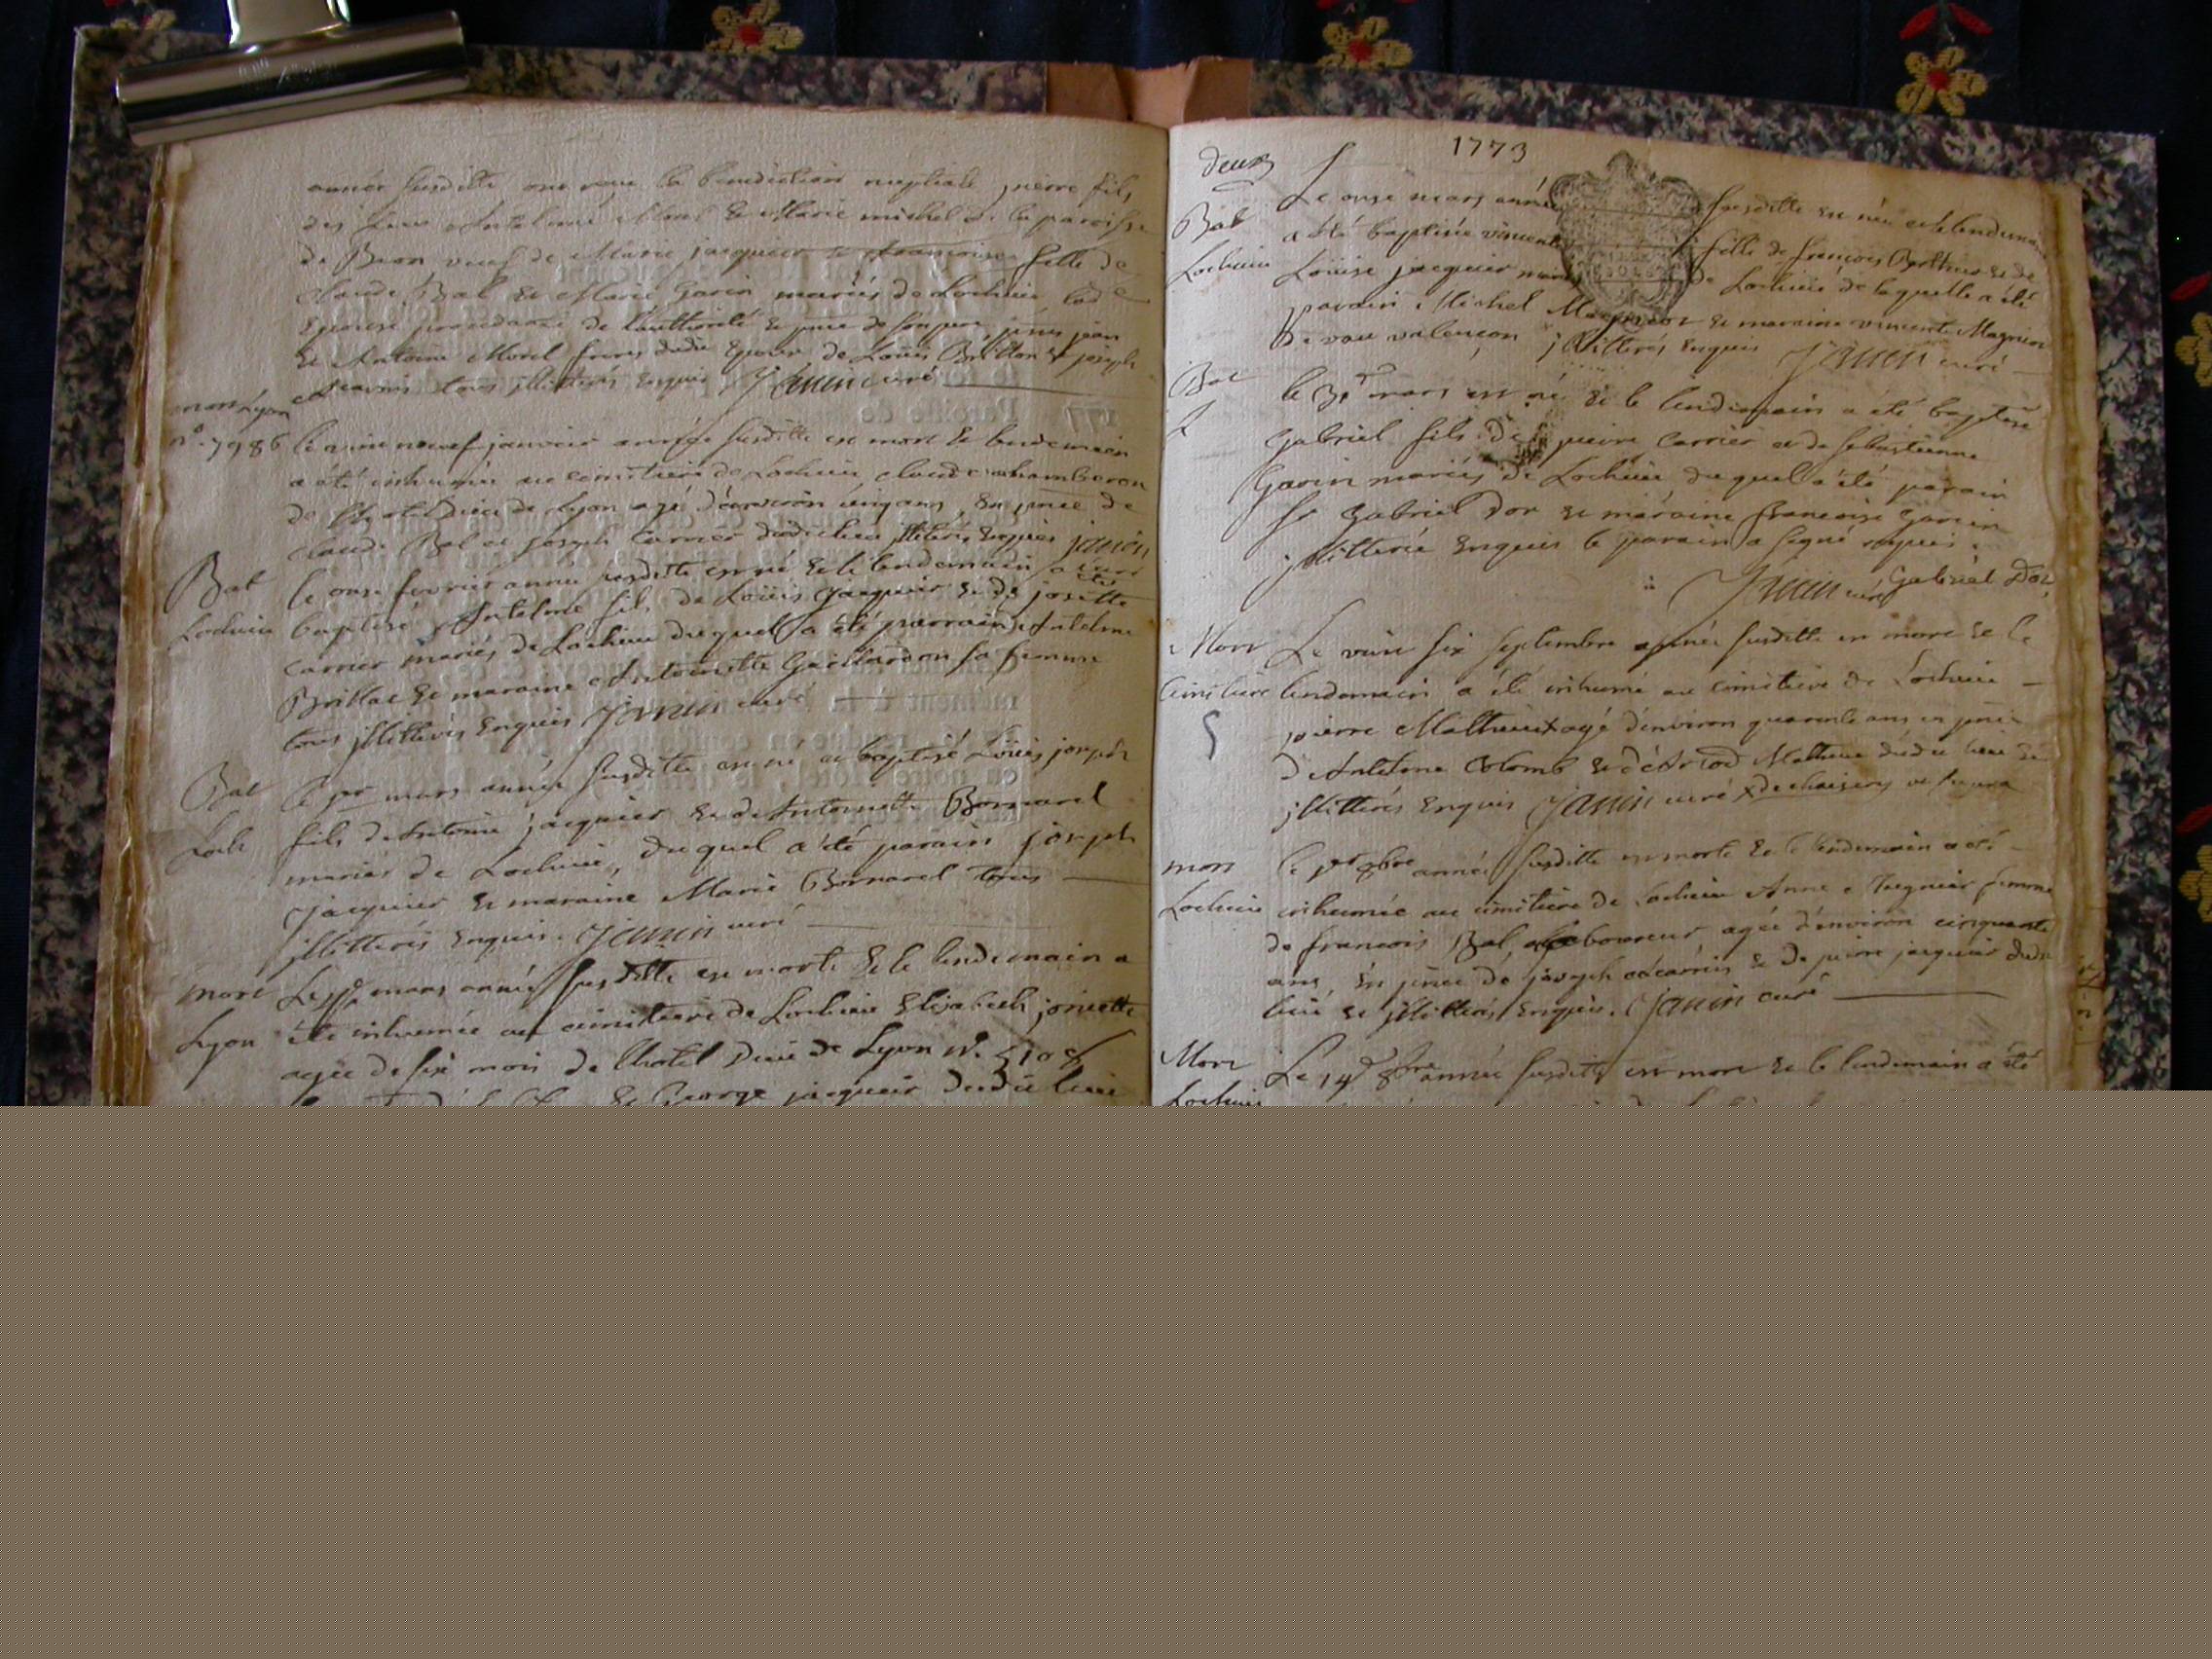 année susditte ont reçu la benediction nuptiale pierre fils
des feus Antelme Morel & Marie michel de la paroisse
de Beon veuf de Marie jacquier & francoise fille de
claude Bal & Marie Garin mariés de Lochieu lad
Epouse procedante de l'authorité & pnce de son pere, pnts jean
& Antoine Morel freres dudit Epoux de Louis Brillat & joseph
tous jllitterés Enquis Janin curé
mort Lyon
n°. 7986 le vint neuf janvier année susditte est mort & le lendemain
a été inhumé au cimitiere de Lochieu claude chamberon
de l'hotel Dieu de Lyon agé d'environ cinq ans, En pnce de
claude Bal et joseph Carrier dudit lieu jllitterés Enquis janin
curé
Bat le onse fevrier année susditte est né & le lendemain a été
Lochieu baptisé Antelme fils de Loüis jacquier & de josette
Carrier mariés de Lochieu duquel a été parrain Antelme
Brillat & maraine Antoinette Gaillardon sa femme
tous jllitterés Enquis Janin curé
Bat le pr mars année susditte est né et baptisé Loüis joseph
Loch fils de Antoine jacquier & de Antoinette Bornarel
mariés de Lochieu, duquel a été parain joseph
Jacquier & maraine Marie Bornarel tous
jllitterés Enquis. Janin curé
mort Le mars année susditte est morte & le lendemain a
Lyon été inhumée au cimitiere de Lochieu Elisabeth
agée de six mois de l'hotel Dieu de Lyon n°.
& George jacquier dudit lieu
1773
deux
Le onse mars année susditte est née et le lendemain
Bat a été baptisée vincente fille de francois Berthier & de
Lochieu Loüise jacquier mariés de Lochieu de laquelle a été
parain Michel & maraine vincente Magnin
de vaux valençon jllitterés Enquis Janin curé
Bat le 31 mars est né & le lendemain a été baptisé
L Gabriel fils de pierre Carrier et de sebastienne
Garin mariés de Lochieu duquel a été parain
Sr Gabriel Dor & maraine francoise Garin
jllitterée Enquis le parain a signé requis.
Janin curé Gabriel Dor
Mort Le vint six septembre année susditte est mort & le
Cimitiere lendemain a été inhumé au cimitiere de Lochieu
pierre Mathieu agé d'environ quarante ans en pnce
d'Antelme Colomb & Mathieu dudit lieu &
jllitterés Enquis Janin curé
mort le pr 8bre année susditte est morte & le lendemain a été
Lochieu inhumée au cimitiere de Lochieu Anne femme
de francois Bal laboureur agée d'environ cinquante
ans, En pnce de joseph & de pierre jacquier dudit
lieu & jllitterés Enquis. Janin curé
Mort Le 14 8bre année susditte est mort & le lendemain a été
Lochieu